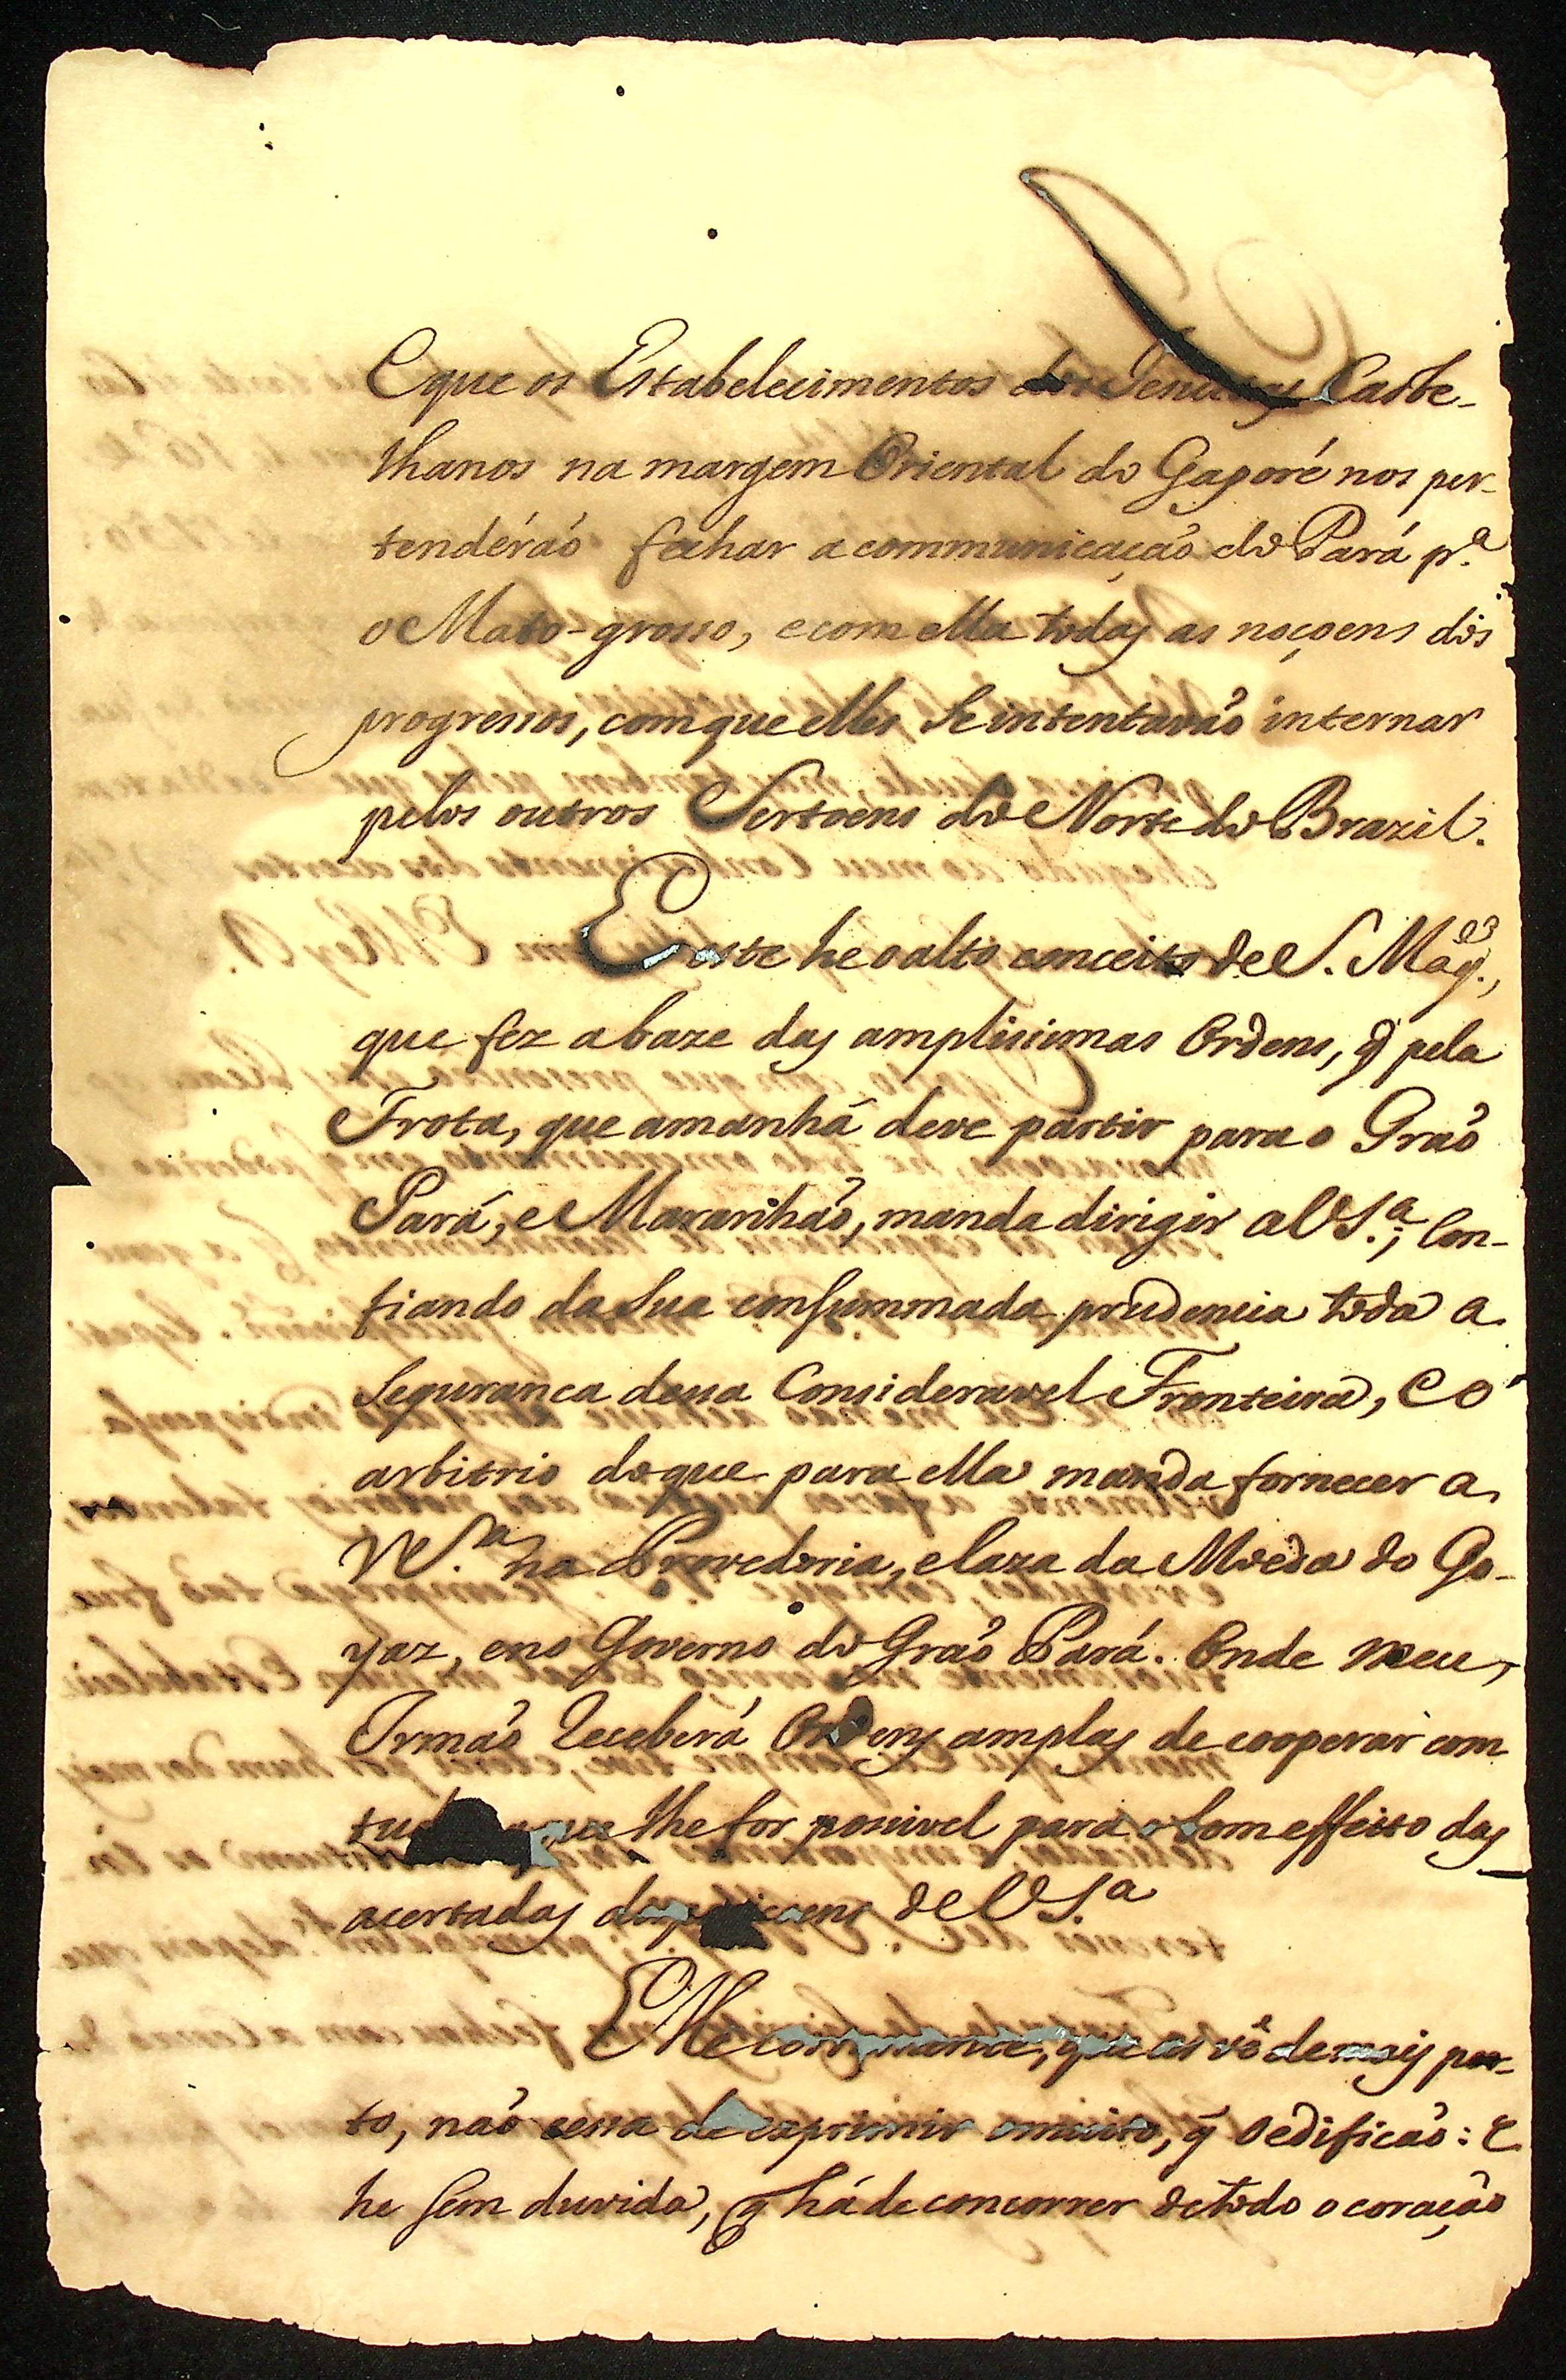 E que os Estabelecimentos dos Jenuitas Caste-
lhanos na margem Oriental do Gaporé nos per-
tendéráõ fechar a communicaçaõ do Pará p.ª
o Mato-grosso, e com ella todas as noçoens dos
progressos, com que elles se intentaváõ internar
pelos outros Sertoens do Norte do Brazil.
Este he o alto conceito de S. Mag.es,
que fez a baze das amplissimas Ordens, q̃ pela
Frota, que amanhã deve partir para o Graõ
Pará, e Maranhaõ, manda dirigir a VS.ª; Con-
fiando da Sua consummada prudencia toda a
Seguranca dessa Consideravel Fronteira, e o
arbitrio do que para ella manda fornecer a
VS.ª na Provedoria, e Caza da Moeda do Go-
yaz, e no Governo do Graõ Pará. Onde meu
Irmaõ Receberá Ordens amplas de cooperar com
tudo que lhe for possivel para o bom effeito das
acertadas dispoziçoens de VS.ª
Elle certamente, que as vê de mais per-
to, naõ cessa de exprimir o muito, q̃ o edificaõ: E
he sem duvida, q̃ há de concorrer de todo o coraçaõ